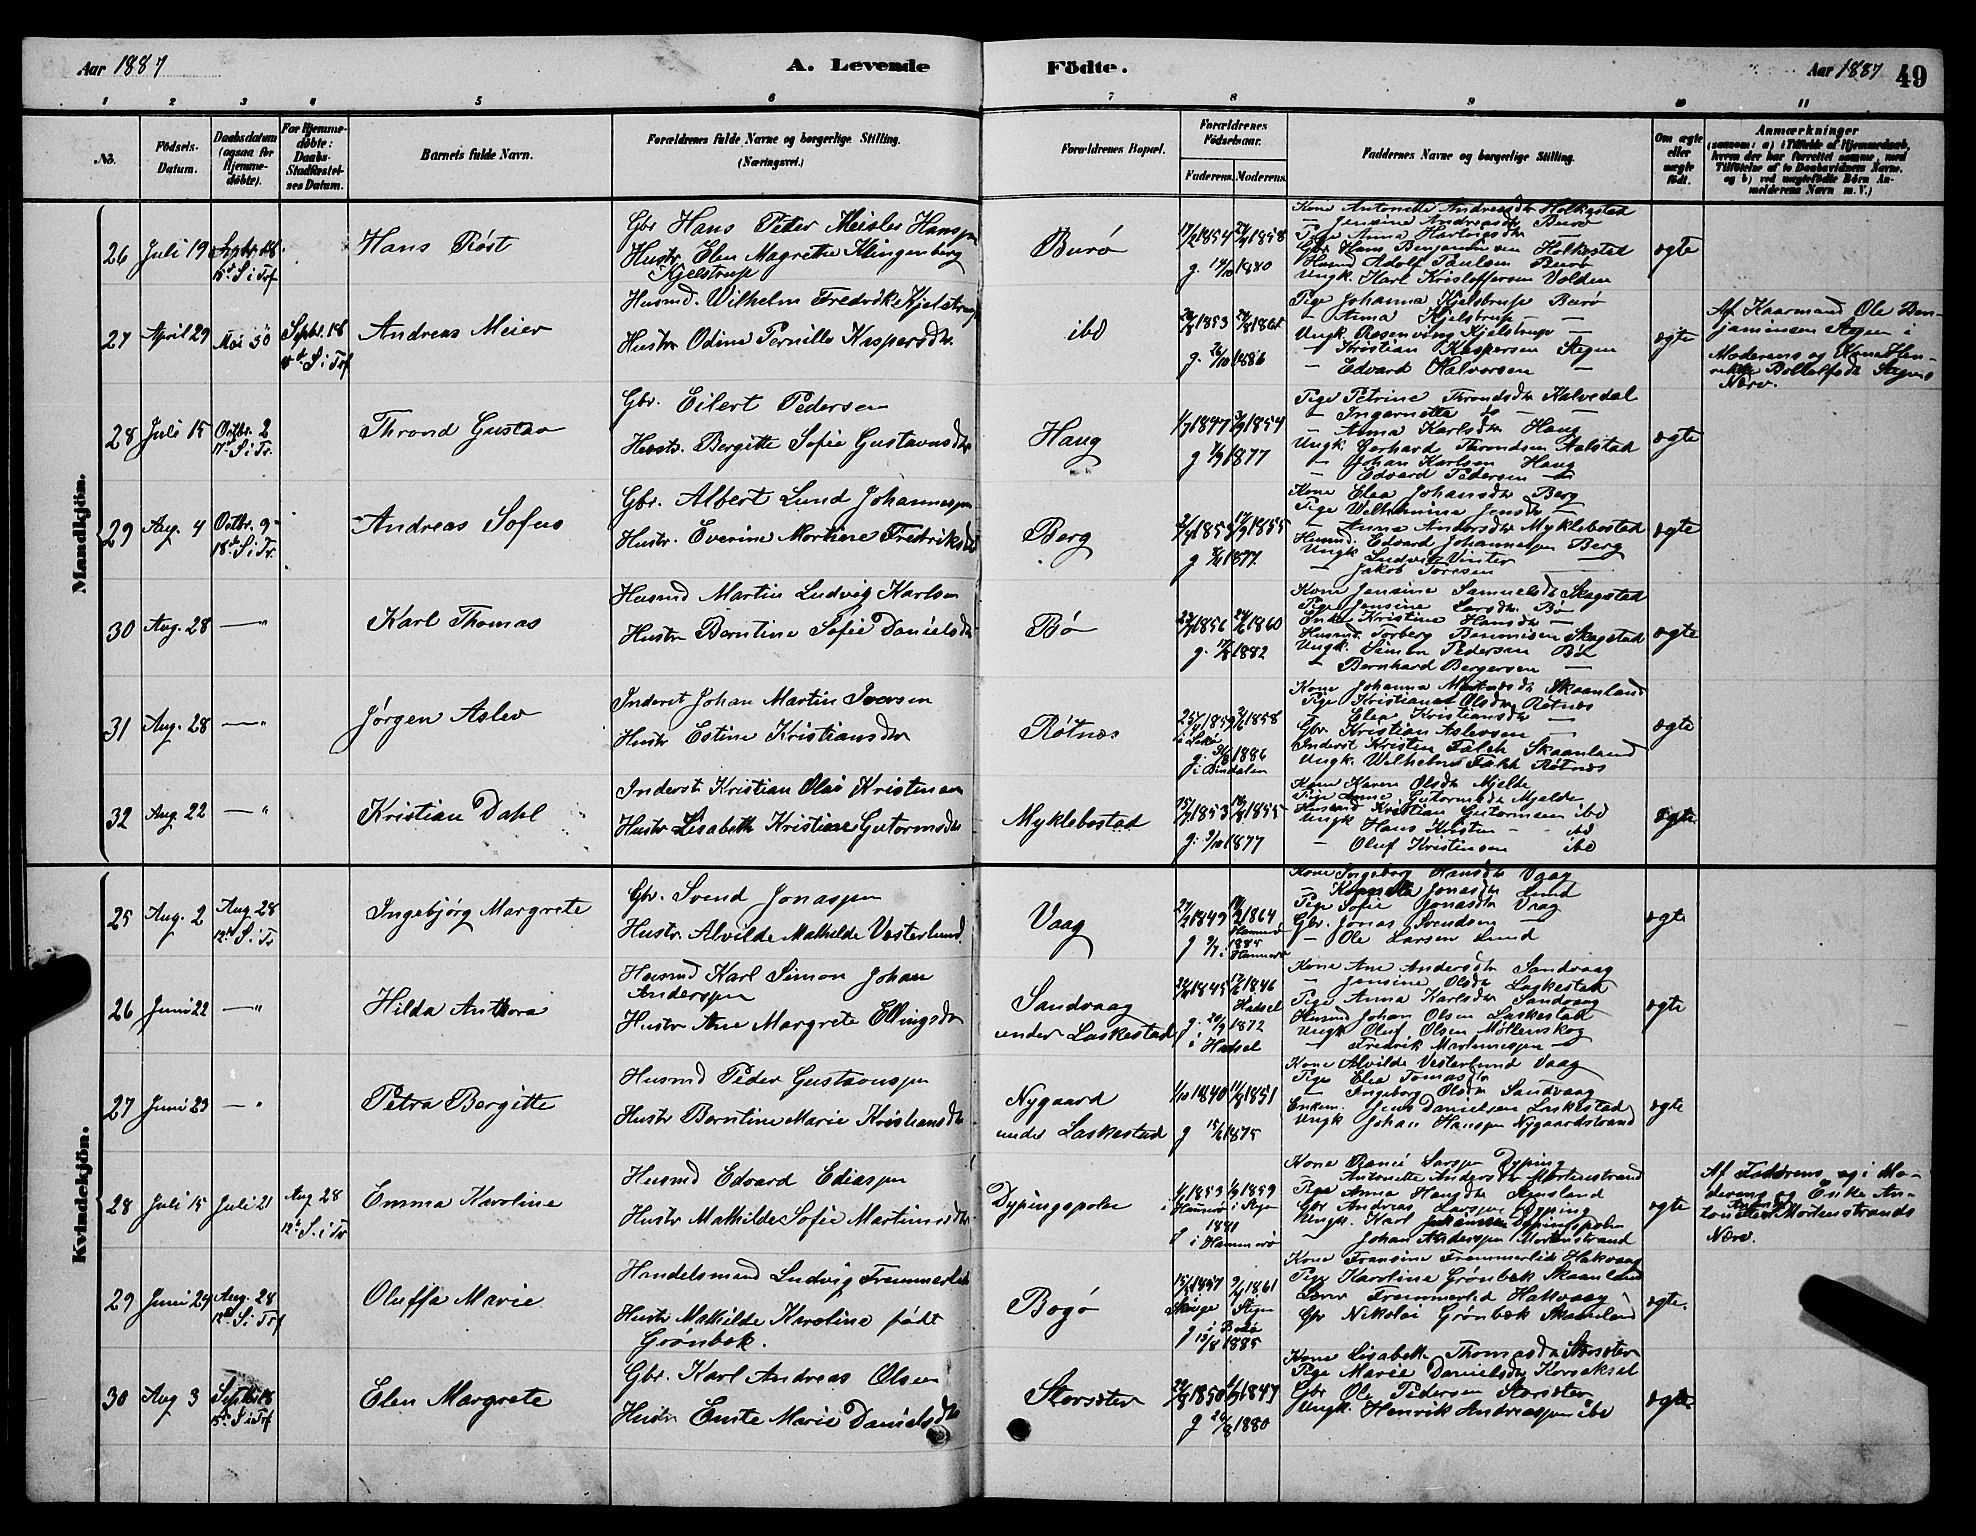 Aar 1887
A. Levende
Födte.
Aar 1887
49
1 2 3 4 5 6 7 8 9 10 11
No.
Födsels-
Datum.
Daabsdatum
(ogsaa for
Hjemme-
döbte).
For Hjemme-
döbte:
Daabs-
Stadfæstel-
ses Datum.
Barnets fulde Navn.
Forældrenes fulde Navne og borgerlige Stilling.
(Næringsvei.)
Forældrenes Bopæl.
Forældrenes
Födselsaar.
Faderens. Moderens.
Faddernes Navne og borgerlige Stilling.
Om ægte
eller
uægte
födt.
Anmærkninger
(saasom: a) i Tilfælde af Hjemmedaab,
hvem der har forrettet samme, med
Tilföielse af to Daabsvidners Navne,
og b) ved uægtefödte Börn An-
melderens Navn m. V.)
Mandkjön.
26 Juli 19 Septbr. 18 S i Trf
Hans Røst
Gbr Hans Peder Meisler Hanssen
Hustr. Elen Magrethe Klingenberg
Kjelstrup
Burø
1854 1858
g. 1880
Kone Antonette Andreasdtr Holkestad
— Jensine Andreasdtr Burø
Pige Anna Hartvigsdtr —
Gbr Hans Benjaminsen Holkestad
Husmd Adolf Paulsen Burø
Ungk. Karl Kristoffersen Volden
ægte
27 April 29 Mai 30 Septbr. 18 S i Trf
Andreas Meier
Husmd. Wilhelm Fredrik Kjelstrup
Hustr Odine Pernille Kaspersdtr
ibd
1853 1865
g. 1886
Pige Johanna Kjelstrup Burø
— Anna Kjelstrup —
Ungk Rosenving Kjelstrup —
— Kristian Kaspersen Stegen
— Edvard Halvorsen —
ægte
Af Kaarmand Ole Ben-
jaminsen Stegen i
Moderens og Kone Hen-
rikke Stegens
Nærv.
28 Juli 15 Octbr. 2 17 S i Tr.
Thrond Gustav
Gbr. Eilert Pedersen
Hustr. Bergitte Sofie Gustavusdtr
Haug
1847 1854
g 1877
Pige Petrine Throndsdtr Kalvedal
— Ingarnette do —
— Anna Karlsdtr Haug
Ungk Gerhard Throndsen
— Johan Karlsen Haug
— Edvard Pedersen —
ægte
29 Aug. 4 Octbr. 9 18de S i Tr.
Andreas Sofus
Gbr. Albert Lund Johannessen
Hustr. Everine Martine Fredriksdtr
Berg
1853 1855
g 1877.
Kone Elea Johansdtr Berg
Pige Wilhelmina Jensdtr —
— Anna Andersdtr Myklebostad
Husmd. Edvard Johannessen Berg
Ungk Ludvik Vinter —
— Jakob Toresen —
ægte
30 Aug. 28 — "
Karl Thomas
Husmd Martin Ludvig Karlsen
Hustr Berntine Sofie Danielsdtr
Bø
1856 1860
g. 1882
Kone Jensine Samuelsdtr Skagstad
Pige Jensine Larsdtr Bø
Kristine Hansdtr —
Husmd. Torberg Skagstad
Ungk. Simon Pedersen Bø
— Bernhard Bergersen —
ægte
31 Aug. 28 — "
Jørgen Aslev
Inderst Johan Martin Iversen
Hustr Estine Kristiansdtr
Røtnæs
1859 1858
g. 1886
i Bindalen
Kone Johanna Skaanland
Pige Kristiane Olsdtr Røtnæs
— Elea Kristiansdtr —
Gbr Kristian Aslevsen —
Inderst Kristen Falch Skaanland
Ungk. Wilhelm Falch Røtnæs
ægte
32 Aug. 22 — "
Kristian Dahl
Inderst Kristian Olai Kristensen
Hustr Lisabeth Kristiane Gutormsdtr
Myklebostad
1853 1855
g. 1877
Kone Karen Olsdtr Mjelde
Pige Anne Gutormsdtr Mjelde
Husmd Kristian Gutormsen ibd
Ungk Hans Kristen — ibd
— Oluf Kristensen ibd
ægte
Kvindekjön.
25 Aug. 2 Aug. 28 12te S i Tr
Ingebjørg Margrete
Gbr. Svend Jonassen
Hustr. Alvilde Mathilde Vesterlund
Vaag
1849 1864
g 1885
Kone Ingeborg Hansdtr Vaag
— Jonasdtr Lund
Pige Sofie Jonasdtr Vaag
Gbr. Jonas Svendsen —
— Ole Larsen Lund
ægte
26 Juni 22 — "
Hilda Anthora
Husmd Karl Simon Johan
Anderssen
Hustr Ane Margrete Ellingsdtr
Sandvaag
under Laskestad
1845 1846
Hadsel
g. 20/9 1872
i Hadsel
Kone Ane Andersdtr Sandvaag
— Jensine Olsdtr Laskestad
Pige Anna Karlsdtr Sandvaag
Husmd Johan Olsen Laskestad
Ungk Oluf Olsen Møllenskog
— Fredrik Martinussen —
ægte
27 Juni 23 — "
Petra Bergitte
Husmd Peder Gustavussen
Hustr Berntine Marie Kristiansdtr
Nygaard
under Laskestad
1840 1851
g 15/ 1875
Kone Alvilde Vesterlund Vaag
Pige Elea Tomasdtr —
— Ingeborg Olsdtr Sandvaag
Enkem. Jens Danielsen Laskestad
Ungk Johan Hanssen Nygaardstrand
ægte
28 Juli 15 Juli 21 Aug 28 12te S i Tr
Emma Karoline
Husmd Edvard Ediassen
Hustr Mathilde Sofie Martinusdtr
Dypingspolen
1853 1859
i Hammerø i Stegen
g 1881
i Hammerø
Kone Larssen Dyping
Antonette Andersdtr Mortenstrand
Pige Anna Hansdtr Stensland
Gbr Andreas Larssen Dyping
Ungk. Karl Johansen Dypingspolen
Johan Anderssen Mortenstrand
ægte
Af Faderens, og i Mo-
derens og Enke An-
tonette Mortenstrands
Nærv.
29 Juni 24 Aug. 28 12te S i Trf
Oluffa Marie
Handelsmand Ludvig Fremmerlid
Hustr Mathilde Karoline født
Grønbek.
Bogø
1857 1861
Stegen
g i Bodø
1885
Kone Fransine Fremmerlid Hakvaag
Pige Karoline Grønbek Skaanland
Fremmerlid Hakvaag
Gbr Nikolai Grønbek Skaanland
ægte.
30 Aug 3 Septbr. 18 15de S i Trf
Elen Margrete
Gbr. Karl Andreas Olsen
Hustr Enste Marie Danielsdtr
Storsæter
1850 1847
g 1880
Kone Lisabeth Thomasdtr Storsæter
Pige Marie Danielsdtr Korsaksel
Gbr Ole Pedersen Storsæter
Ungk. Henrik Andreassen ibd
ægte